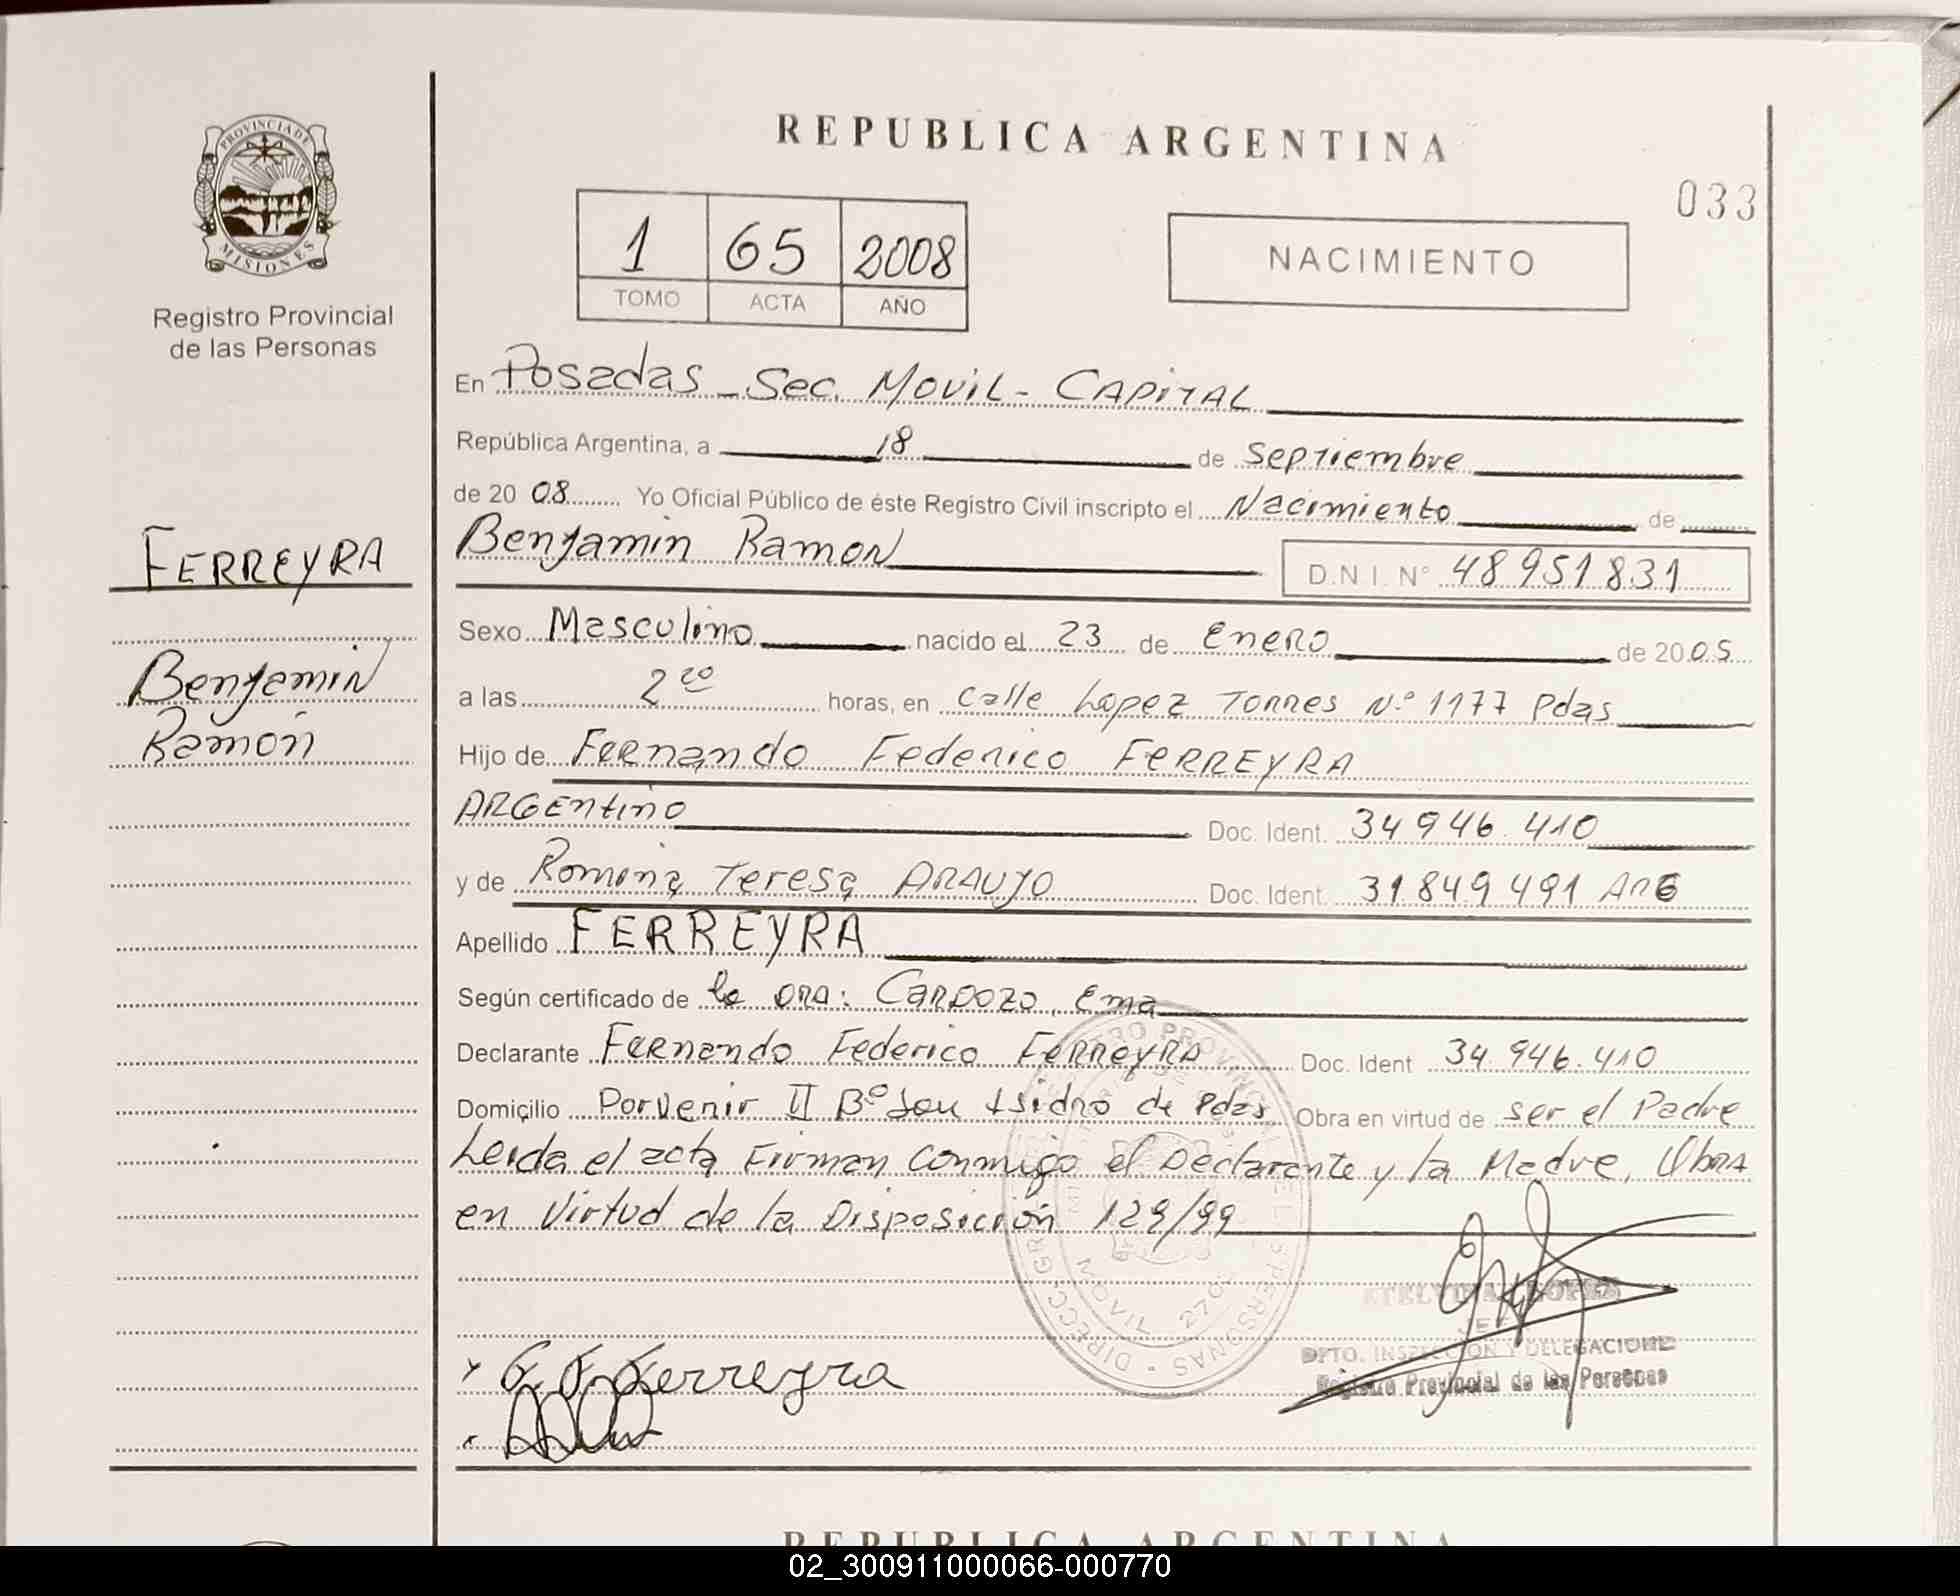 PROVINCIA DE
MISIONES
Registro Provincial
de las Personas
FERREYRA
Benjamin
Ramón
REPUBLICA ARGENTINA
033
1 65 2008
TOMO ACTA AÑO
NACIMIENTO
En Posadas - Sec. Movil - CAPITAL
República Argentina, a 18 de septiembre
de 2008 Yo Oficial Público de éste Registro Civil inscripto el Nacimiento de
Benjamin Ramon D.N.I. Nº 48951831
Sexo Masculino nacido el 23 de Enero de 2005
a las 2 20 horas, en calle Lopez Torres Nº 1177 Pdas
Hijo de Fernando Federico FERREYRA
ARGENTINO Doc. Ident. 34946.410
y de Romina Teresa ARAUJO Doc. Ident. 31.849.491 ARG
Apellido FERREYRA
Según certificado de la DRA: CARDOZO, Ema
Declarante Fernando Federico FERREYRA Doc. Ident 34.946.410
Domicilio Porvenir II Bº San Isidro de Pdas Obra en virtud de ser el Padre
Leida el acta Firman conmigo el Declarante y la Madre, Obra
en Virtud de la Disposición 129/99
F. F. Ferreyra
JEFE
DPTO. INSPECCION Y DELEGACIONES
Registro Provincial de las Personas
REPUBLICA ARGENTINA
02_300911000066-000770